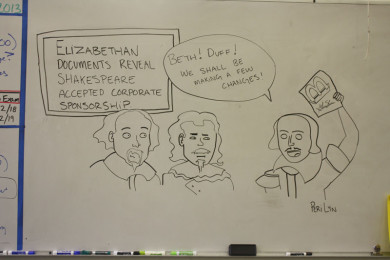 2013
ELIZABETHAN
DOCUMENTS REVEAL
SHAKESPEARE
ACCEPTED CORPORATE
SPONSORSHIP
BETH! DUFF!
WE SHALL BE
MAKING A FEW
CHANGES!
Exam
2/18
2/19
PERI LYN